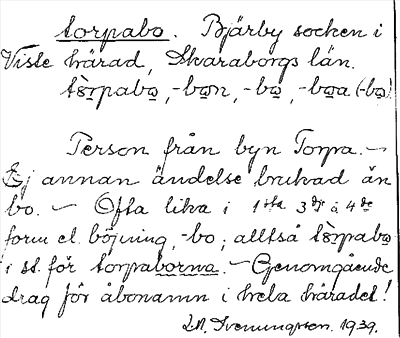 torpabo. Bjärby socken i
Viste härad, Skaraborgs län.
tòrpabo, -bon, -bo, -boa (-bo)
Person från byn Torpa. –
Ej annan ändelse brukad än
bo. – Ofta lika i 1sta 3dje à 4de
form el. böjning, -bo; alltså tòrpabo
i st. för torpaborna. – Genomgående
drag för åbonamn i hela häradet!
L.N. Svenungsson. 1939.